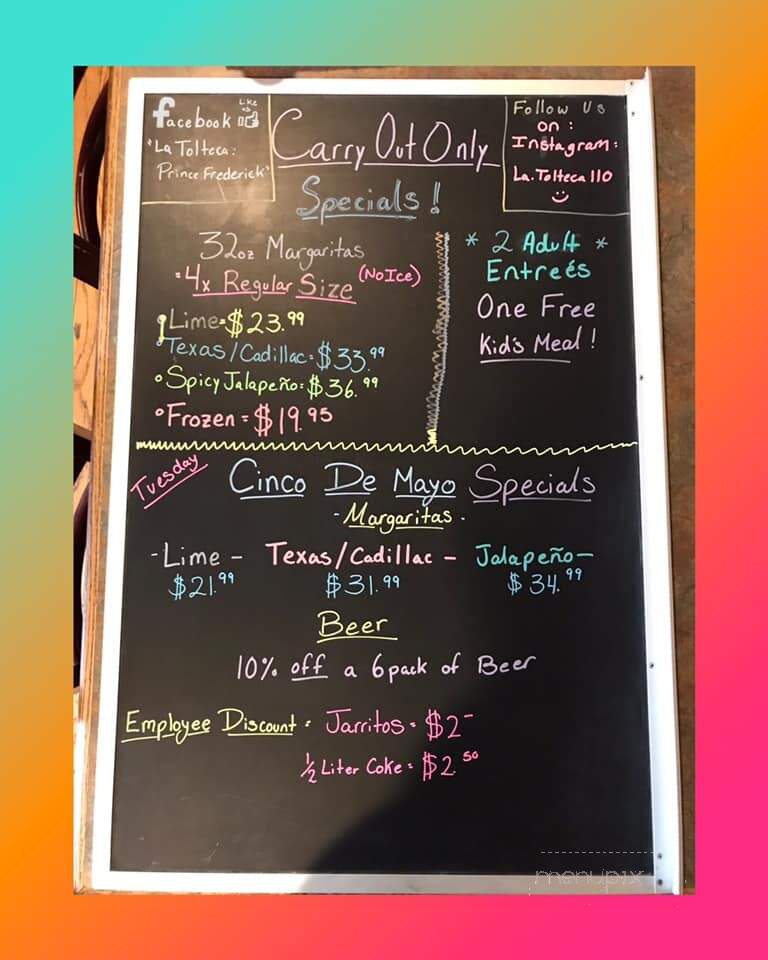 facebook Like us
"La Tolteca:
Prince Frederick"
Carry Out Only
Specials!
Follow Us
on:
Instagram:
La.Tolteca110
32oz Margaritas
=4x Regular Size (No Ice)
Lime=$23.99
Texas/Cadillac=$33.99
Spicy Jalapeño=$36.99
Frozen=$19.95
* 2 Adult *
Entreés
One Free
Kid's Meal!
Tuesday
Cinco De Mayo Specials
- Margaritas -
- Lime - Texas/Cadillac - Jalapeño -
$21.99 $31.99 $34.99
Beer
10% off a 6pack of Beer
Employee Discount = Jarritos = $2-
½ Liter Coke = $2.50
menupix